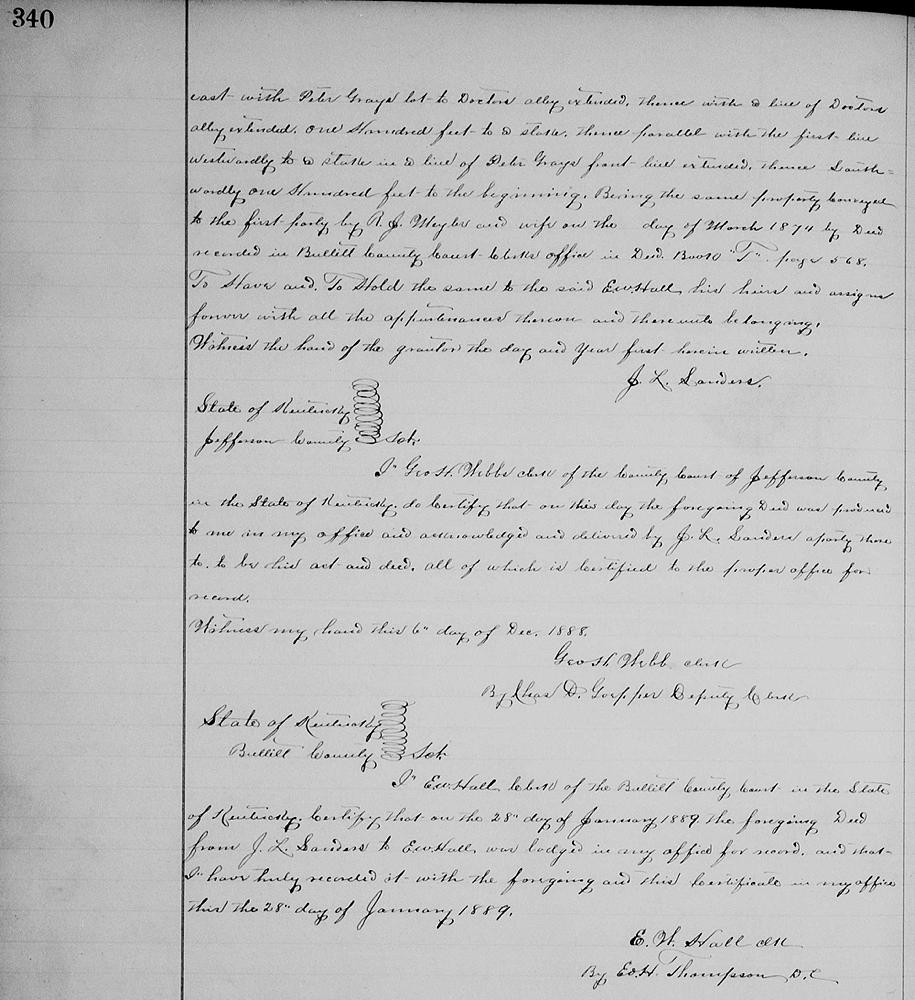 340
east with Peter Grays lot to Doctors alley extended, thence with a line of Doctors
alley extended, One Hundred feet to a stake, thence parallel with the first line
westwardly to a stake in a line of Peter Grays front line extended, thence South=
wardly One Hundred feet to the beginning. Being the same property conveyed
to the first party by R. J. Meyler and wife on the day of March 1874 by Deed
recorded in Bullitt County Court Clerks office in Deed Book "T" page 568.
To Have and To Hold the same to the said E.W. Hall his heirs and assigns
forever with all the appurtenances thereon and thereunto belonging.
Witness the hand of the grantor the day and Year first herein written.
J. L. Sanders.
State of Kentucky
Jefferson County Sct.
I Geo H. Webb clerk of the County Court of Jefferson County
in the State of Kentucky, do Certify that on this day the foregoing Deed was produced
to me in my office and acknowledged and delivered by J. L. Sanders a party there
to, to be his act and deed, all of which is Certified to the proper office for
record.
Witness my hand this 6" day of Dec. 1888.
Geo H Webb clerk
By Chas D. Goepper Deputy Clerk
State of Kentucky
Bullitt County Sct.
I E.W. Hall Clerk of the Bullitt County Court in the State
of Kentucky. Certify that on the 28" day of January 1889 the foregoing Deed
from J. L. Sanders to E.W. Hall, was lodged in my office for record, and that
I have duly recorded it with the foregoing and this Certificate in my office
this the 28" day of January 1889.
E. W. Hall clk
By Ed. H. Thompson D.C